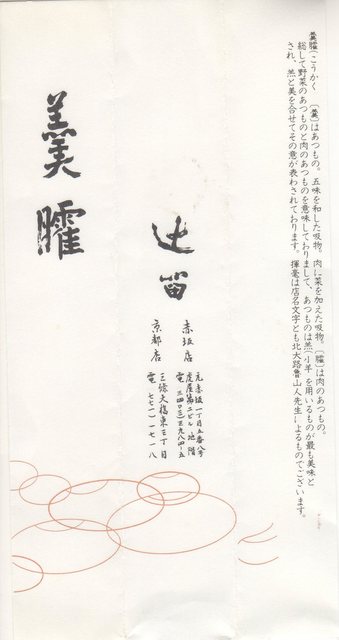 羹臛(こうかく 〔羹〕はあつもの。五味を和した吸物。肉に菜を加えた吸物。〔臛〕は肉のあつもの。
総して野菜のあつものと肉のあつものを意味しておりまして、あつものは羔(小羊)を用いるものが最も美味と
され、羔と美を合せてその意が表わされております。揮毫は店名文字とも北大路魯山人先生によるものでございます。
辻留
赤坂店
元赤坂一丁目五番八号
虎屋第二ビル・地階
電(三四〇三)三九八四-五
京都店
三條大橋東三丁目
電 七七一-一七一八
羹臛